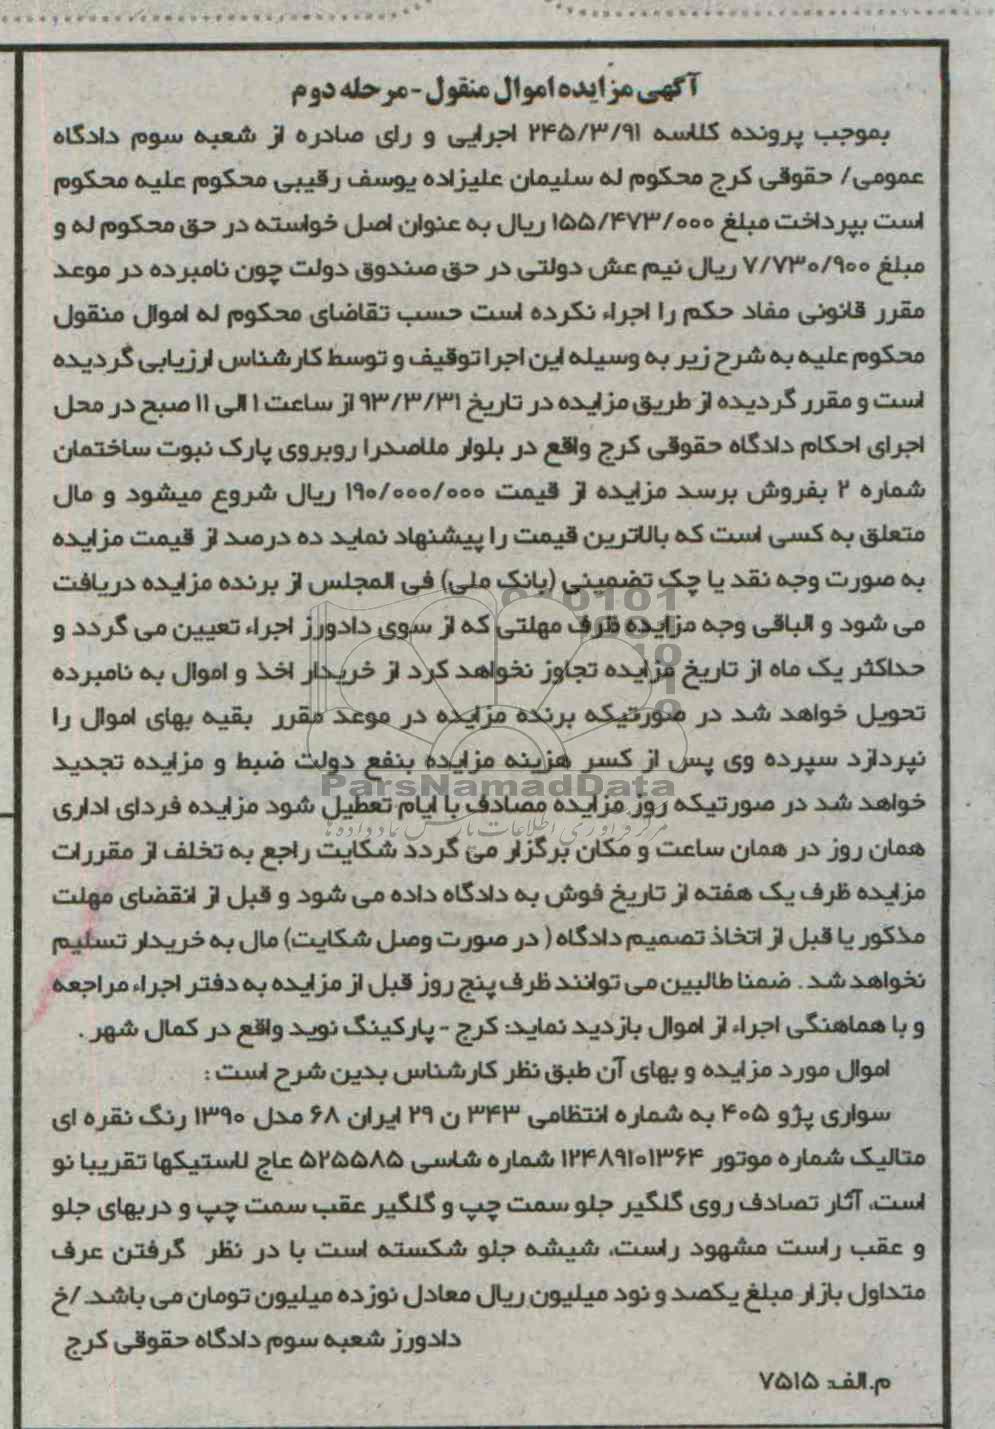 آگهی مزایده اموال منقول - مرحله دوم
بموجب پرونده کلاسه ۲۴۵/۳/۹۱ اجرایی و رای صادره از شعبه سوم دادگاه
عمومی/ حقوقی کرج محکوم له سلیمان علیزاده یوسف رقیبی محکوم علیه محکوم
است بپرداخت مبلغ ۱۵۵/۴۷۳/۰۰۰ ریال به عنوان اصل خواسته در حق محکوم له و
مبلغ ۷/۷۳۰/۹۰۰ ریال نیم عش دولتی در حق صندوق دولت چون نامبرده در موعد
مقرر قانونی مفاد حکم را اجراء نکرده است حسب تقاضای محکوم له اموال منقول
محکوم علیه به شرح زیر به وسیله این اجرا توقیف و توسط کارشناس ارزیابی گردیده
است و مقرر گردیده از طریق مزایده در تاریخ ۹۳/۳/۳۱ از ساعت ۱ الی ۱۱ صبح در محل
اجرای احکام دادگاه حقوقی کرج واقع در بلوار ملاصدرا روبروی پارک نبوت ساختمان
شماره ۲ بفروش برسد مزایده از قیمت ۱۹۰/۰۰۰/۰۰۰ ریال شروع میشود و مال
متعلق به کسی است که بالاترین قیمت را پیشنهاد نماید ده درصد از قیمت مزایده
به صورت وجه نقد یا چک تضمینی (بانک ملی) فی المجلس از برنده مزایده دریافت
می شود و الباقی وجه مزایده ظرف مهلتی که از سوی دادورز اجراء تعیین می گردد و
حداکثر یک ماه از تاریخ مزایده تجاوز نخواهد کرد از خریدار اخذ و اموال به نامبرده
تحویل خواهد شد در صورتیکه برنده مزایده در موعد مقرر بقیه بهای اموال را
نپردازد سپرده وی پس از کسر هزینه مزایده بنفع دولت ضبط و مزایده تجدید
ParsNamadData
خواهد شد در صورتیکه روز مزایده مصادف با ایام تعطیل شود مزایده فردای اداری
مرکز فرآوری اطلاعات پارس نماد داده ها
همان روز در همان ساعت و مکان برگزار می گردد شکایت راجع به تخلف از مقررات
مزایده ظرف یک هفته از تاریخ فوش به دادگاه داده می شود و قبل از انقضای مهلت
مذکور یا قبل از اتخاذ تصمیم دادگاه ( در صورت وصل شکایت) مال به خریدار تسلیم
نخواهد شد . ضمنا طالبین می توانند ظرف پنج روز قبل از مزایده به دفتر اجراء مراجعه
و با هماهنگی اجراء از اموال بازدید نماید: کرج - پارکینگ نوید واقع در کمال شهر .
اموال مورد مزایده و بهای آن طبق نظر کارشناس بدین شرح است :
سواری پژو ۴۰۵ به شماره انتظامی ۳۴۳ ن ۲۹ ایران ۶۸ مدل ۱۳۹۰ رنگ نقره ای
متالیک شماره موتور ۱۲۴۸۹۱۰۱۳۶۴ شماره شاسی ۵۲۵۵۸۵ عاج لاستیکها تقریبا نو
است، آثار تصادف روی گلگیر جلو سمت چپ و گلگیر عقب سمت چپ و دربهای جلو
و عقب راست مشهود راست، شیشه جلو شکسته است با در نظر گرفتن عرف
متداول بازار مبلغ یکصد و نود میلیون ریال معادل نوزده میلیون تومان می باشد. /خ
دادورز شعبه سوم دادگاه حقوقی کرج
م.الف: ۷۵۱۵